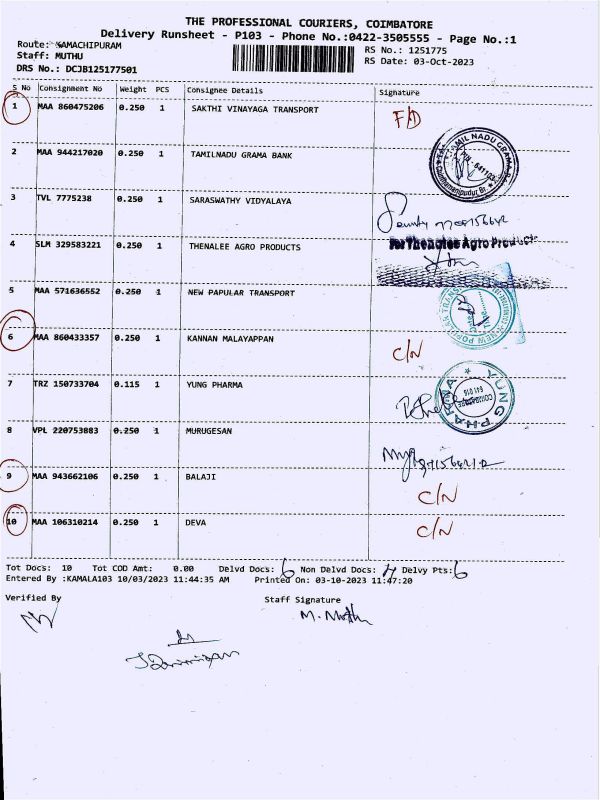 THE PROFESSIONAL COURIERS, COIMBATORE
Delivery Runsheet - P103 - Phone No.:0422-3505555 - Page No.:1
Route: SAMACHIPURAM
RS No.: 1251775
Staff: MUTHU
RS Date: 03-Oct-2023
DRS No.: DCJB125177501
S No Consignment No Weight PCS Consignee Details Signature
1 MAA 860475206 0.250 1 SAKTHI VINAYAGA TRANSPORT F/D
2 MAA 944217020 0.250 1 TAMILNADU GRAMA BANK
TAMIL NADU GRAMA
3 TVL 7775238 0.250 1 SARASWATHY VIDYALAYA
4 SLM 329583221 0.250 1 THENALEE AGRO PRODUCTS
For Thenalee Agro Products
5 MAA 571636552 0.250 1 NEW PAPULAR TRANSPORT
6 MAA 860433357 0.250 1 KANNAN MALAYAPPAN C/N
7 TRZ 150733704 0.115 1 YUNG PHARMA
YUNG PHARMA
8 VPL 220753883 0.250 1 MURUGESAN
9 MAA 943662106 0.250 1 BALAJI C/N
10 MAA 106310214 0.250 1 DEVA C/N
Tot Docs: 10 Tot COD Amt: 0.00 Delvd Docs: 6 Non Delvd Docs: 4 Delvy Pts: 6
Entered By :KAMALA103 10/03/2023 11:44:35 AM Printed On: 03-10-2023 11:47:20
Verified By Staff Signature
M. Muthu